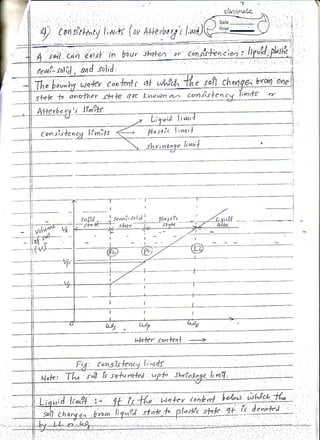 classmate
Date
Page
4) consistency limits (or Atterberg's limit)
A soil can exist in bour states or consistencies: liquid, plastic
semi-solid, and solid.
The bounty water contents at which the soil changes from one
state to another state are known as consistency limits or
Atterberg's limits
Liquid limit
consistency limits
Plastic limit
shrinkage limit
solid state
semi-solid state
plastic state
Liquid state
volume of soil (V)
VL
Vp
Vs
SL
PL
LL
0
Ws
Wp
WL
Water content →
Fig: Consistency limits
Note: The soil is saturated upto shrinkage limit.
Liquid limit :- It is the water content below which the
soil changes from liquid state to plastic state. It is denoted
by LL or WL